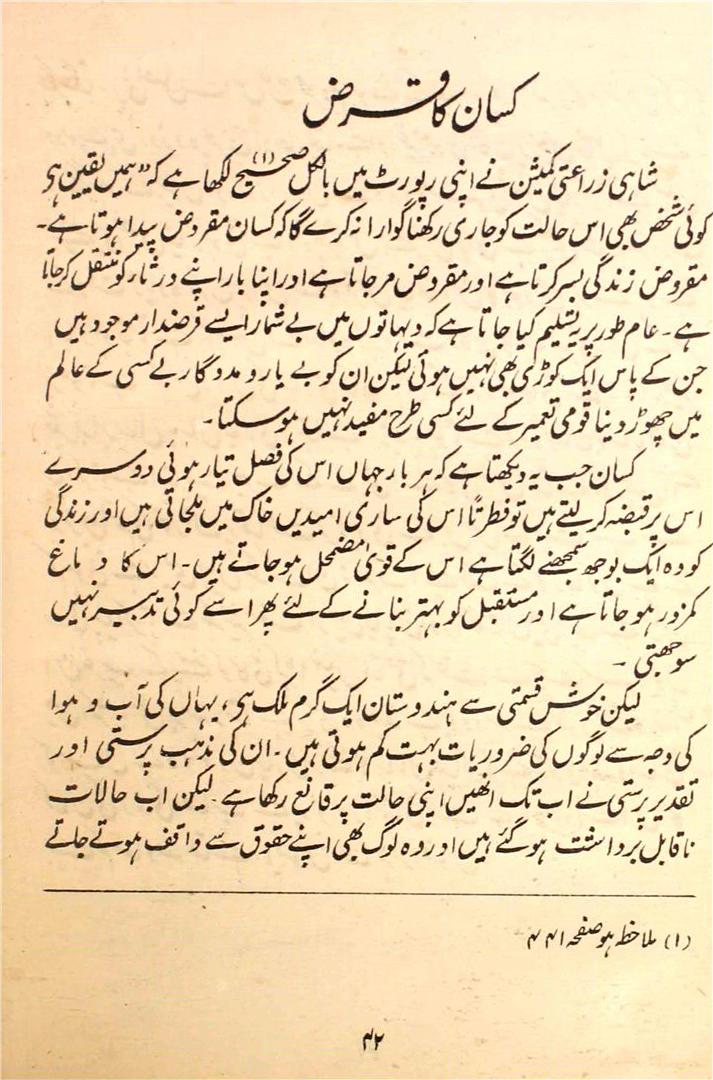 کسان کا قرض
شاہی زراعتی کمیشن نے اپنی رپورٹ میں بالکل صحیح (۱) لکھا ہے کہ "ہمیں یقین ہی
کوئی شخص بھی اس حالت کو جاری رکھنا گوارا نہ کرے گا کہ کسان مقروض پیدا ہوتا ہے۔
مقروض زندگی بسر کرتا ہے اور مقروض مرجاتا ہے اور اپنا بار اپنے ورثار کو منتقل کرجاتا
ہے۔ عام طور پر یہ تسلیم کیا جاتا ہے کہ دیہاتوں میں بے شمار ایسے قرضدار موجود ہیں
جن کے پاس ایک کوڑی بھی نہیں ہوئی لیکن ان کو بے یار و مددگار بے کسی کے عالم
میں چھوڑ دینا قومی تعمیر کے لئے کسی طرح مفید نہیں ہوسکتا۔
کسان جب یہ دیکھتا ہے کہ ہر بار جہاں اس کی فصل تیار ہوئی دوسرے
اس پر قبضہ کر لیتے ہیں تو فطرتاً اس کی ساری امیدیں خاک میں ملجاتی ہیں اور زندگی
کو وہ ایک بوجھ سمجھنے لگتا ہے اس کے قویٰ مضمحل ہوجاتے ہیں۔ اس کا دماغ
کمزور ہوجاتا ہے اور مستقبل کو بہتر بنانے کے لئے پھر اسے کوئی تدبیر نہیں
سوجھتی ۔
لیکن خوش قسمتی سے ہندوستان ایک گرم ملک ہی، یہاں کی آب و ہوا
کی وجہ سے لوگوں کی ضروریات بہت کم ہوتی ہیں۔ ان کی مذہب پرستی اور
تقدیر پرستی نے اب تک انھیں اپنی حالت پر قانع رکھا ہے۔ لیکن اب حالات
ناقابل برداشت ہوگئے ہیں اور وہ لوگ بھی اپنے حقوق سے واقف ہوتے جاتے
(۱) ملاحظہ ہو صفحہ ۴۴۱
۴۲